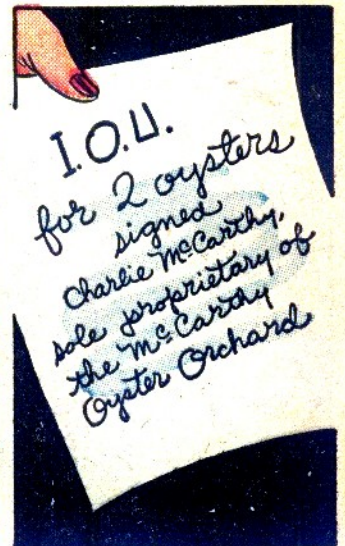 I.O.U.
for 2 oysters
signed
Charlie McCarthy,
sole proprietary of
the McCarthy
Oyster Orchard